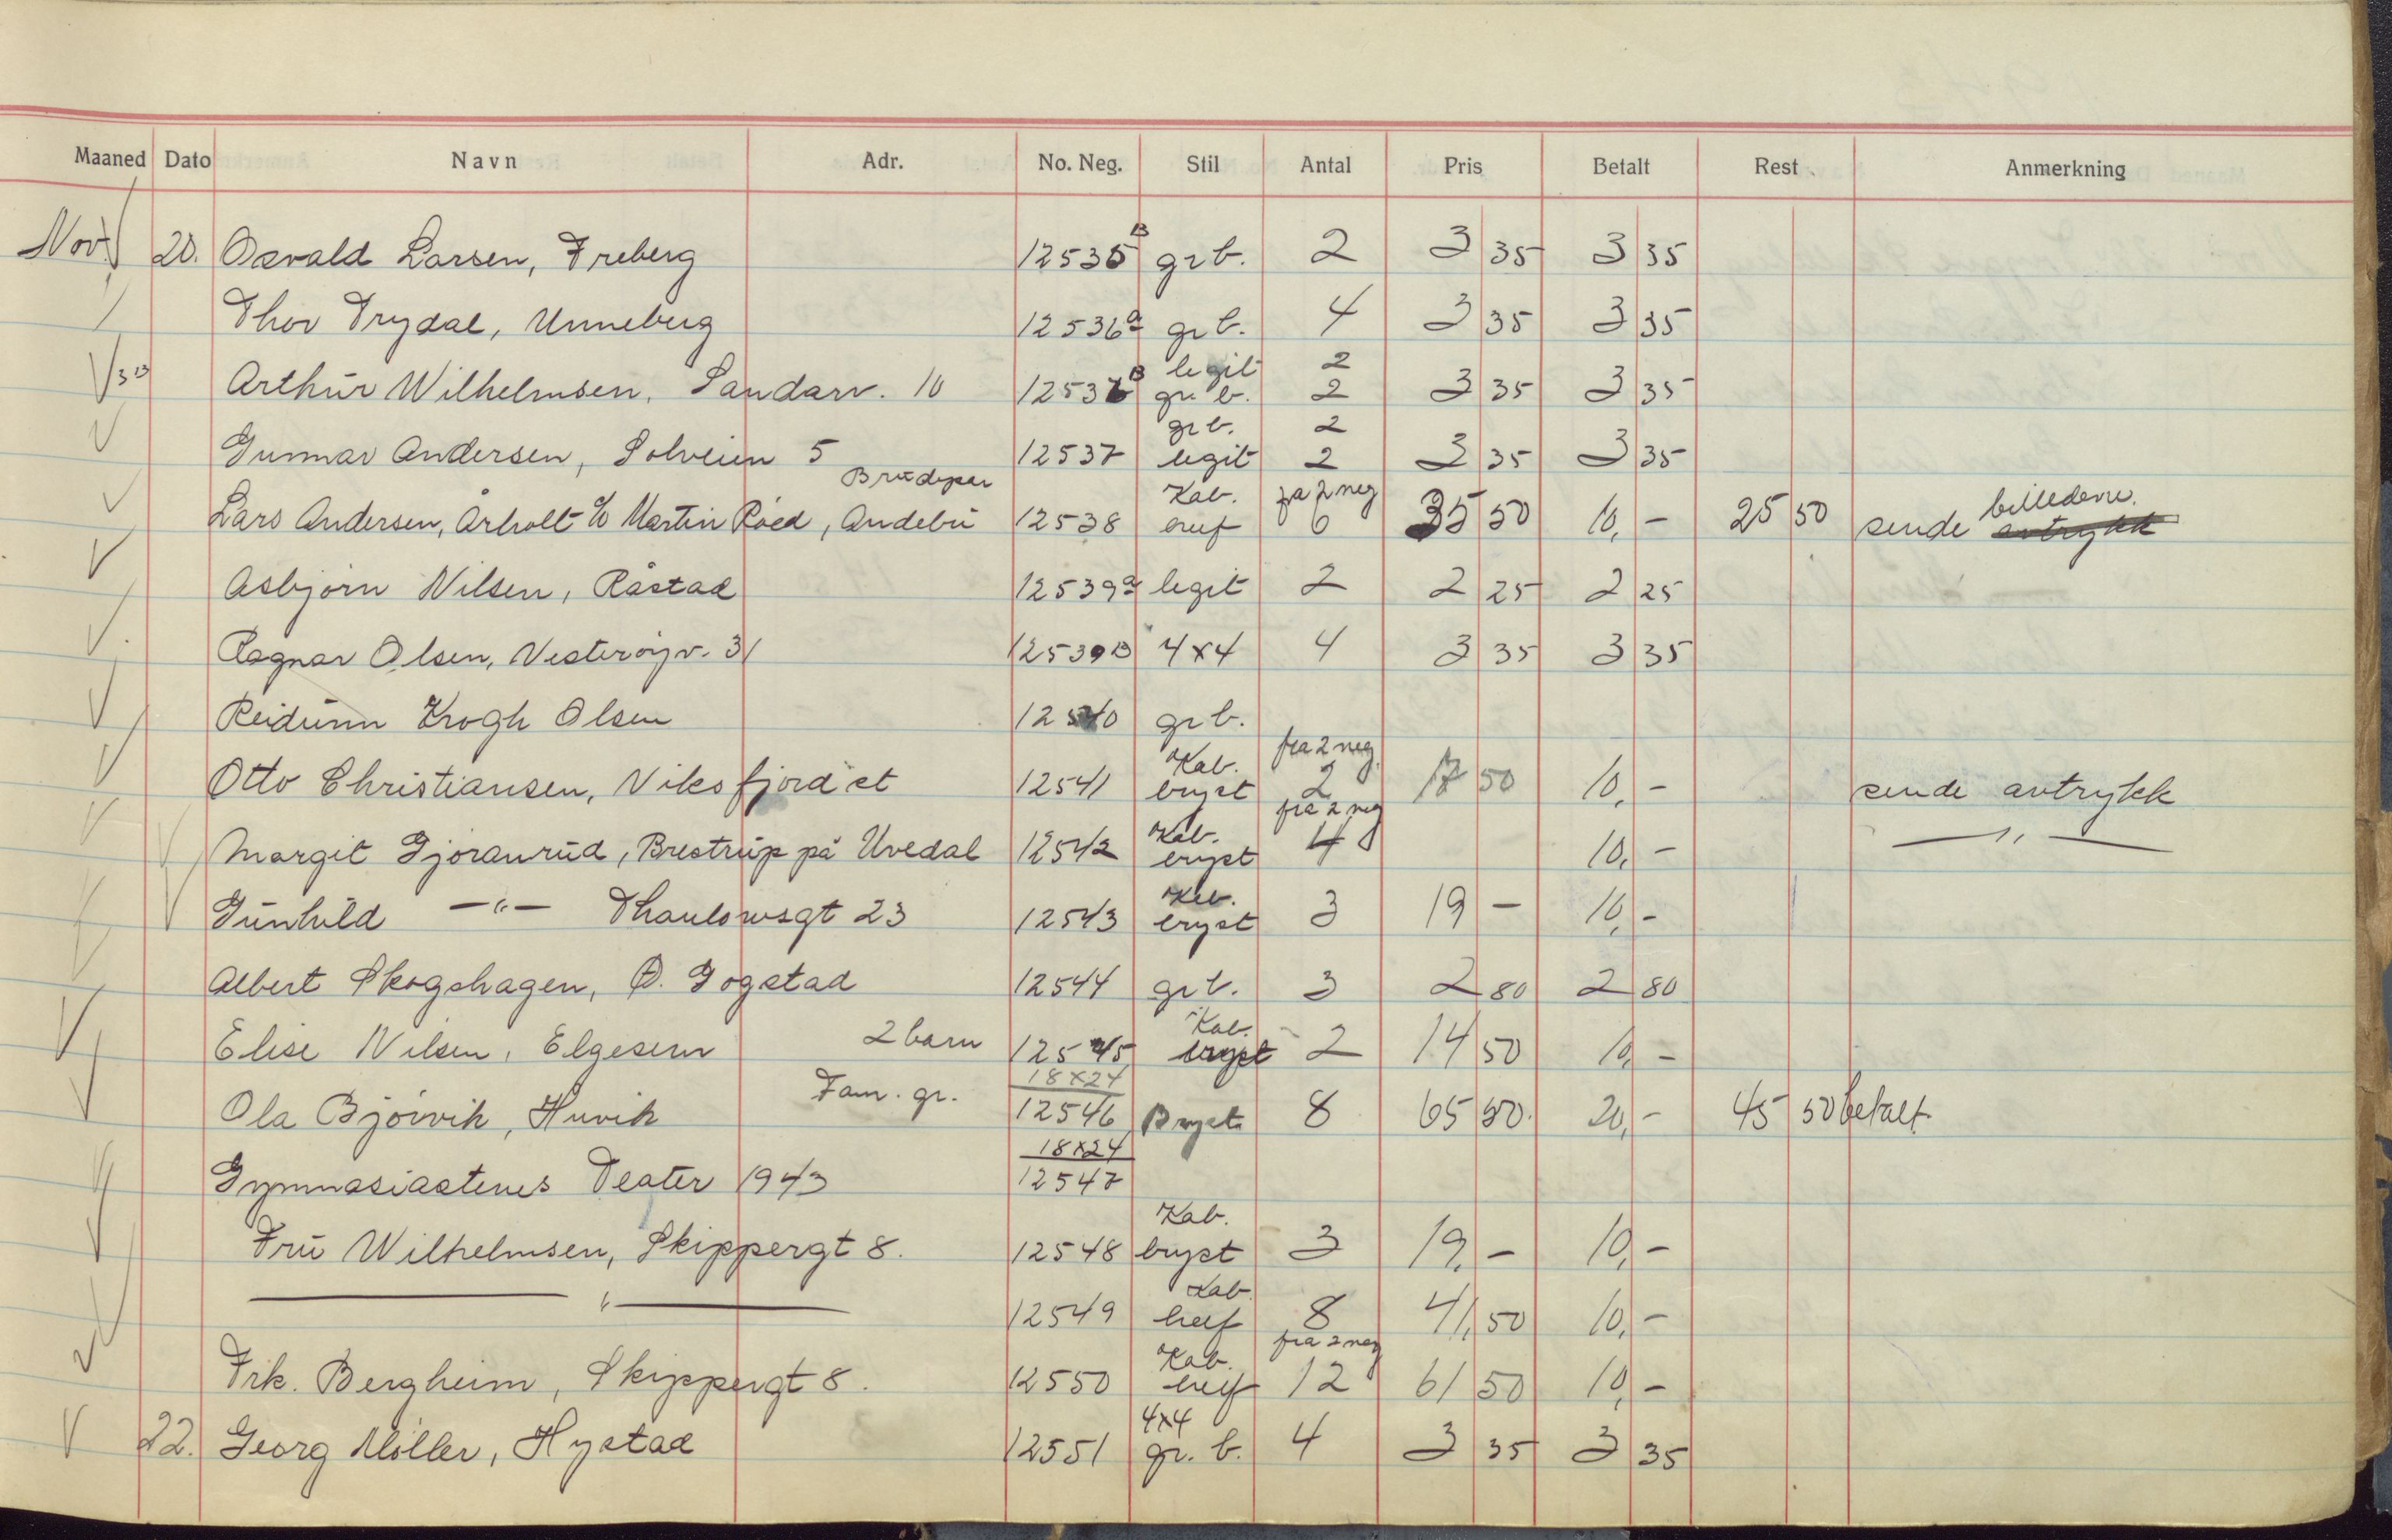 Maaned Dato Navn Adr. No. Neg. Stil Antal Pris Betalt Rest Anmerkning
Nov. 20. Osvald Larsen, Freberg 12535 B gr b. 2 3 35 3 35
Thor Trydal, Unneberg 12536 a gr b. 4 3 35 3 35
legit 2
Arthur Wilhelmsen, Sandarv. 10 12536 B gr b. 2 3 35 3 35
gr b. 2
Gunnar Andersen, Solveien 5 12537 legit 2 3 35 3 35
Brudepar Kab. fra 2 neg billedene.
Lars Andersen, Årholt c/o Martin Röed, Andebu 12538 6 35 50 10,- 25 50 sende avtrykk
Asbjörn Nilsen, Råstad 12539 a legit 2 2 25 2 25
Ragnar Olsen, Vesteröyv. 31 12539 B 4x4 4 3 35 3 35
Reidunn Krogh Olsen 12540 gr b.
Kab. fra 2 neg.
Otto Christiansen, Viksfjord st 12541 bryst 2 17 50 10,- sende avtrykk
Kab. fra 2 neg
Margit Gjöranrud, Brestrup på Uvedal 12542 bryst 4 10,- —"—
Kab.
Gunhild —"— Thaulowsgt 23 12543 bryst 3 19 - 10,-
Albert Skogshagen, Ö. Gogstad 12544 gr b. 3 2 80 2 80
Kab.
Elise Nilsen, Elgesem 2 barn 12545 bryst 2 14 50 10,-
Fam. gr. 18x24
Ola Björvik, Huvik 12546 Bryst 8 65 50. 20,- 45 50 betalt
18x24
Gymnasiastenes Teater 1943 12547
Kab.
Fru Wilhelmsen, Skippergt 8. 12548 bryst 3 19,- 10,-
Kab.
—"— 12549 8 41,50 10,-
Kab. fra 2 neg
Frk. Bergheim, Skippergt 8. 12550 12 61 50 10,-
4x4
22. Georg Möller, Hystad 12551 gr. b. 4 3 35 3 35